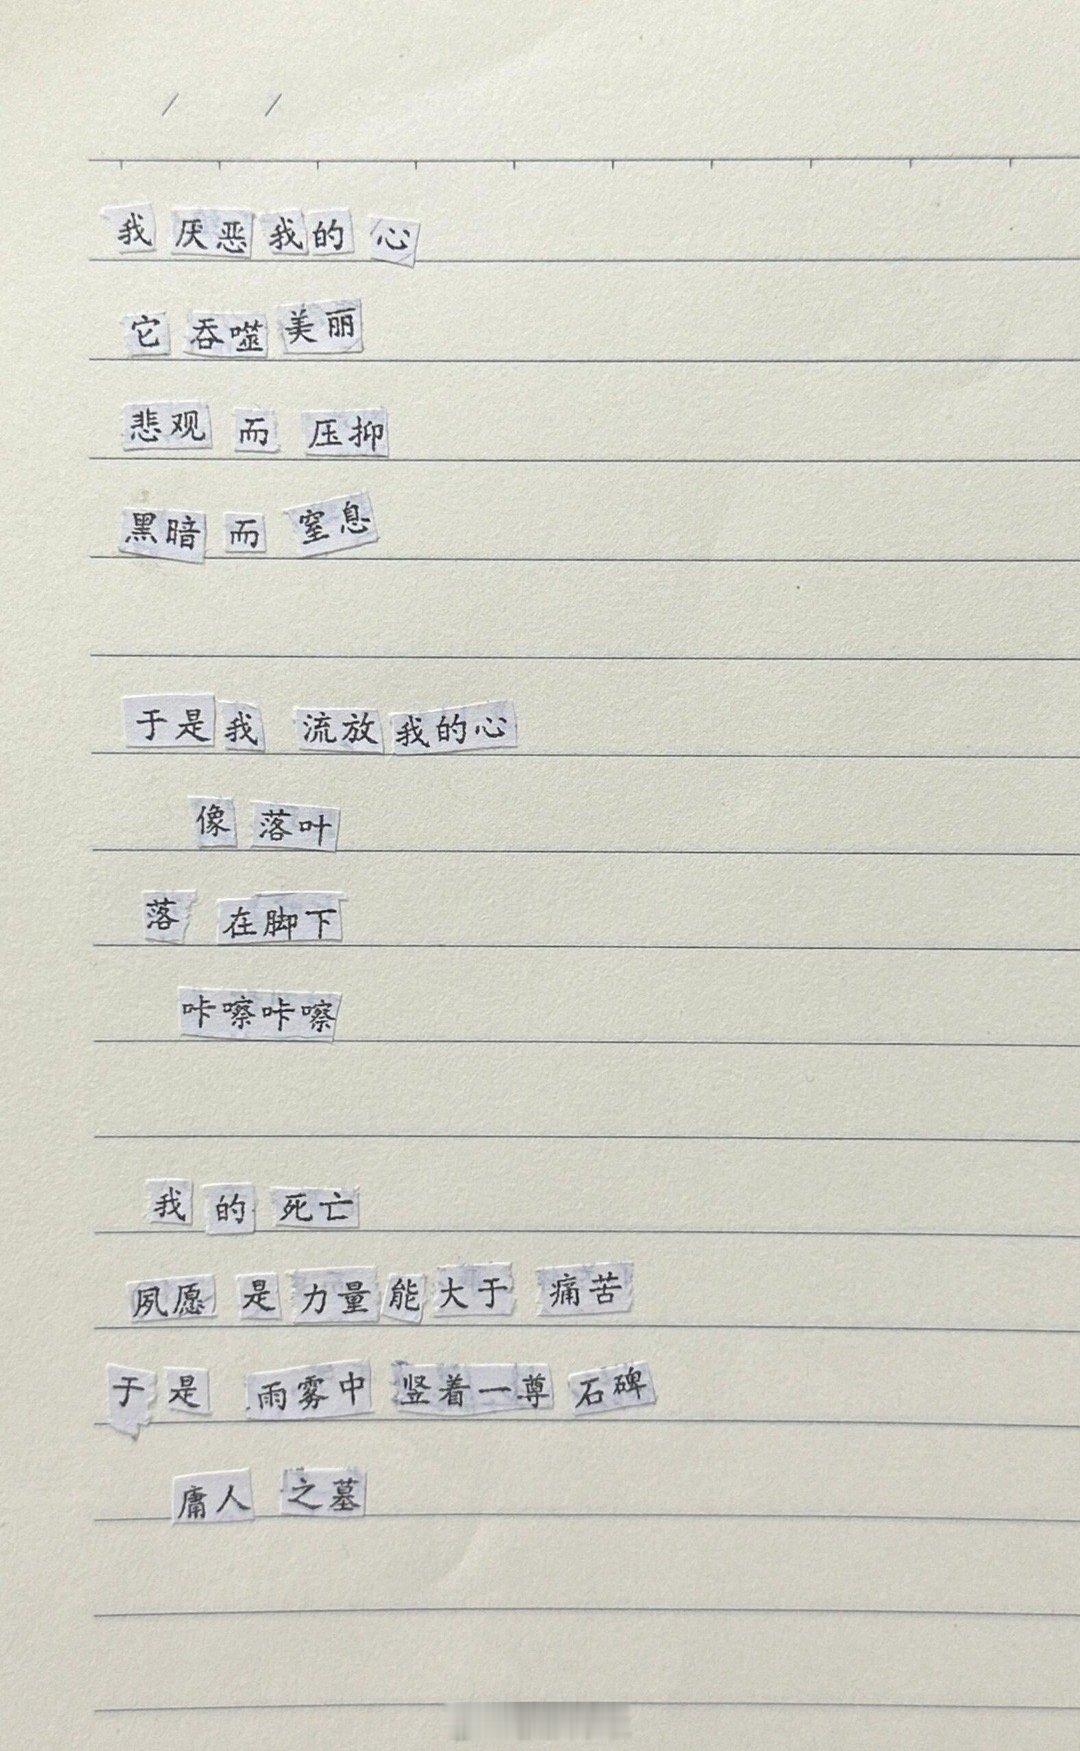 我厌恶我的心
它吞噬美丽
悲观而压抑
黑暗而窒息
于是我流放我的心
像落叶
落在脚下
咔嚓咔嚓
我的死亡
夙愿是力量能大于痛苦
于是雨雾中竖着一尊石碑
庸人之墓